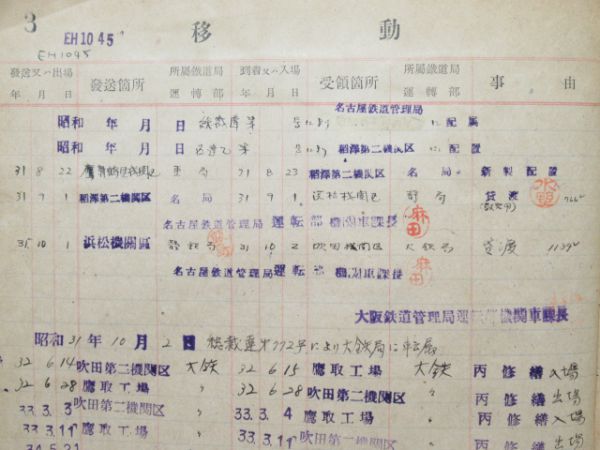 3
移動
EH10 45
EH1045
發送又ハ出場 發送箇所 所屬鐵道局 到着又ハ入場 受領箇所 所屬鐵道局 事由
年 月 日 運轉部 年 月 日 運轉部
名古屋鉄道管理局
昭和 年 月 日 により に配属
昭和 年 月 日 により 稻澤第二機関区 に配置
31 8 22 東局 31 8 23 稻澤第二機関区 名局 新製配置
31 9 1 稻澤第二機関区 名局 31 9 1 浜松機関区 静局 貸渡
名古屋鉄道管理局運転部機関車課長
麻田
31 10 1 浜松機關區 静局 31 10 2 吹田機関区 大鉄局 貸渡
名古屋鉄道管理局運転部機関車課長
麻田
大阪鉄道管理局運転部機関車課長
昭和31年10月2日 総裁運才772号により大鉄局に転属
32 6.14 吹田第二機関区 大鉄 32 6 15 鷹取工場 大鉄 丙修繕入場
32 6 28 鷹取工場 〃 32 6 28 吹田第二機関区 〃 丙修繕出場
33.3.3 吹田第二機関区 〃 33.3.4 鷹取工場 〃 丙修繕入場
33.3.11 鷹取工場 〃 33.3.11 吹田第二機関区 〃 丙修繕出場
34.5.21